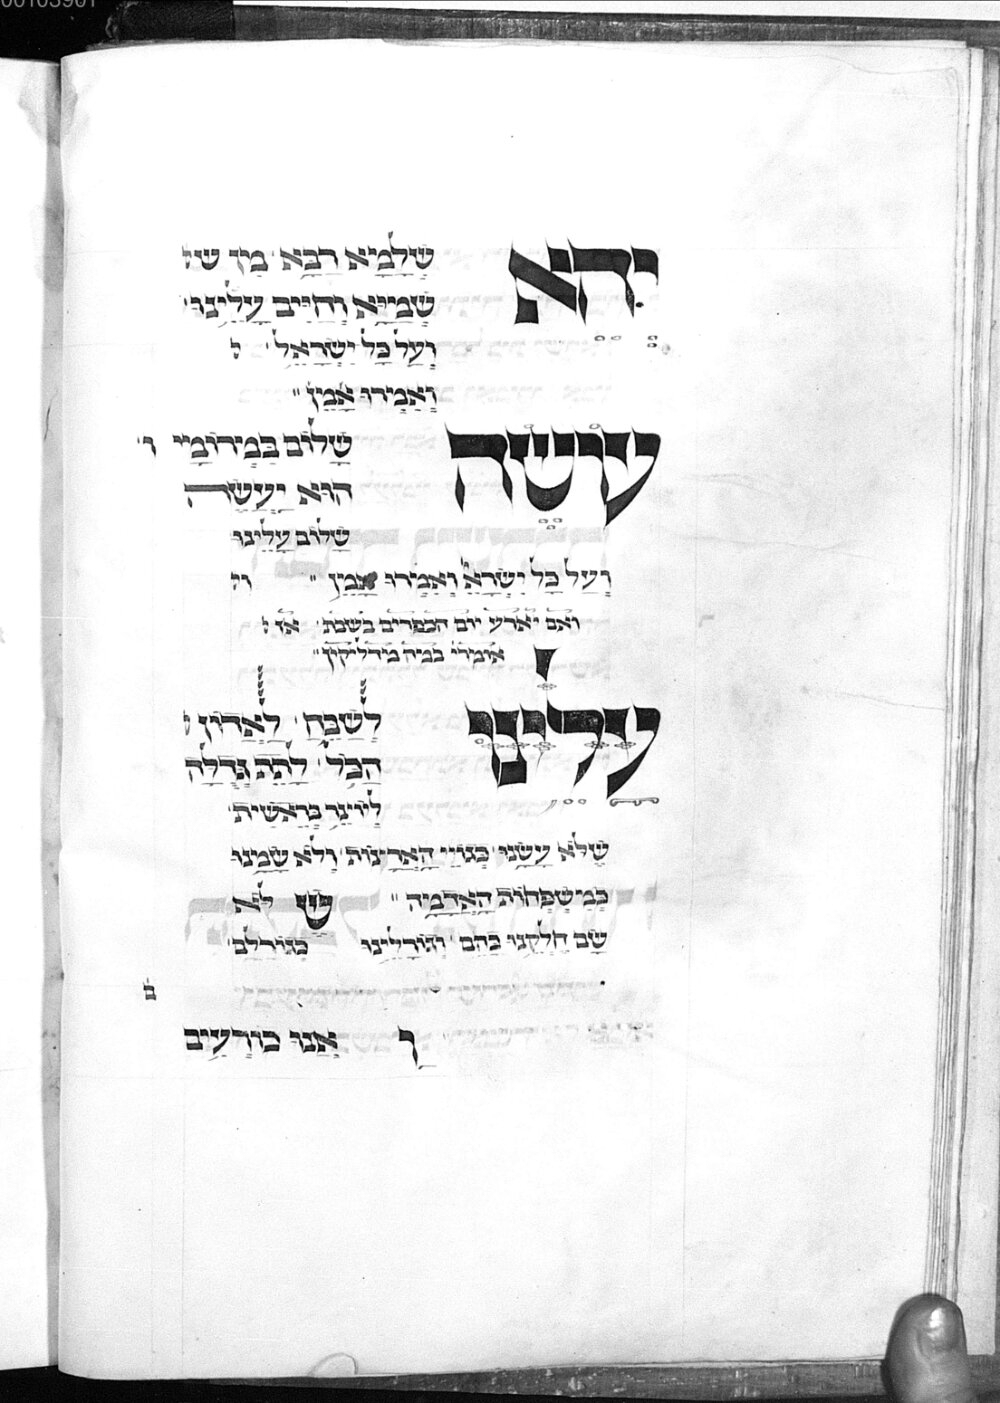 00103901
יְהֵא שְׁלָמָא רַבָּא מִן
שְׁמַיָּא וְחַיִּים עָלֵינוּ
וְעַל כָּל יִשְׂרָאֵל
וְאִמְרוּ אָמֵן
עוֹשֶׂה שָׁלוֹם בִּמְרוֹמָיו
הוּא יַעֲשֶׂה
שָׁלוֹם עָלֵינוּ
וְעַל כָּל יִשְׂרָאֵ וְאִמְרוּ אָמֵן
ואם יארע יום הכפרים בשבת אז
אומרי במה מדליקין
עָלֵינוּ לְשַׁבֵּחַ לַאֲדוֹן
הַכֹּל לָתֵת גְּדֻלָּה
לְיוֹצֵר בְּרֵאשִׁית
שֶׁלֹּא עָשָׂנוּ כְּגוֹיֵי הָאֲרָצוֹת וְלֹא שָׂמָנוּ
כְּמִשְׁפְּחוֹת הָאֲדָמָה שֶׁ לֹּא
שָׂם חֶלְקֵנוּ כָּהֶם וְגוֹרָלֵינוּ כְּגוֹרָלם
ו אָנוּ כּוֹרְעִים